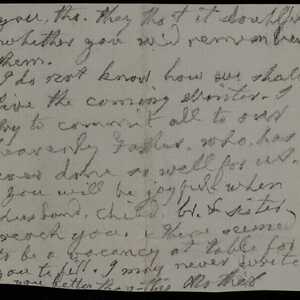 you, tho. they tho't it doubtful
whether you w'd remember
them.
I do not know how we shall
live the coming Winter. I
try to commit all to our
heavenly Father, who has
ever done so well for us.
you will be joyful when
husband, child, br. & sister
reach you. There seemed
to be a vacancy at table for
you to fill. I may never write
you better than this Mother